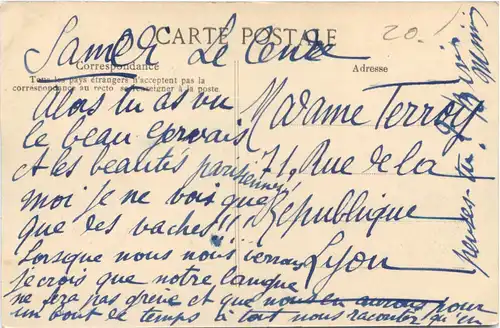 CARTE POSTALE
Correspondance
Tous les pays étrangers n'acceptent pas la
correspondance au recto se renseigner à la poste.
Adresse
20.
Samedi Le
Alors tu as vu
le beau Gervais
et les beautés parisiennes!
moi je ne vois que
que des vaches!!
Lorsque nous nous verrons
je crois que notre langue
ne sera pas grève et que nous en aurons pour
un bout de temps à tout nous raconter
Madame Terroy
71, Rue de la
République
Lyon